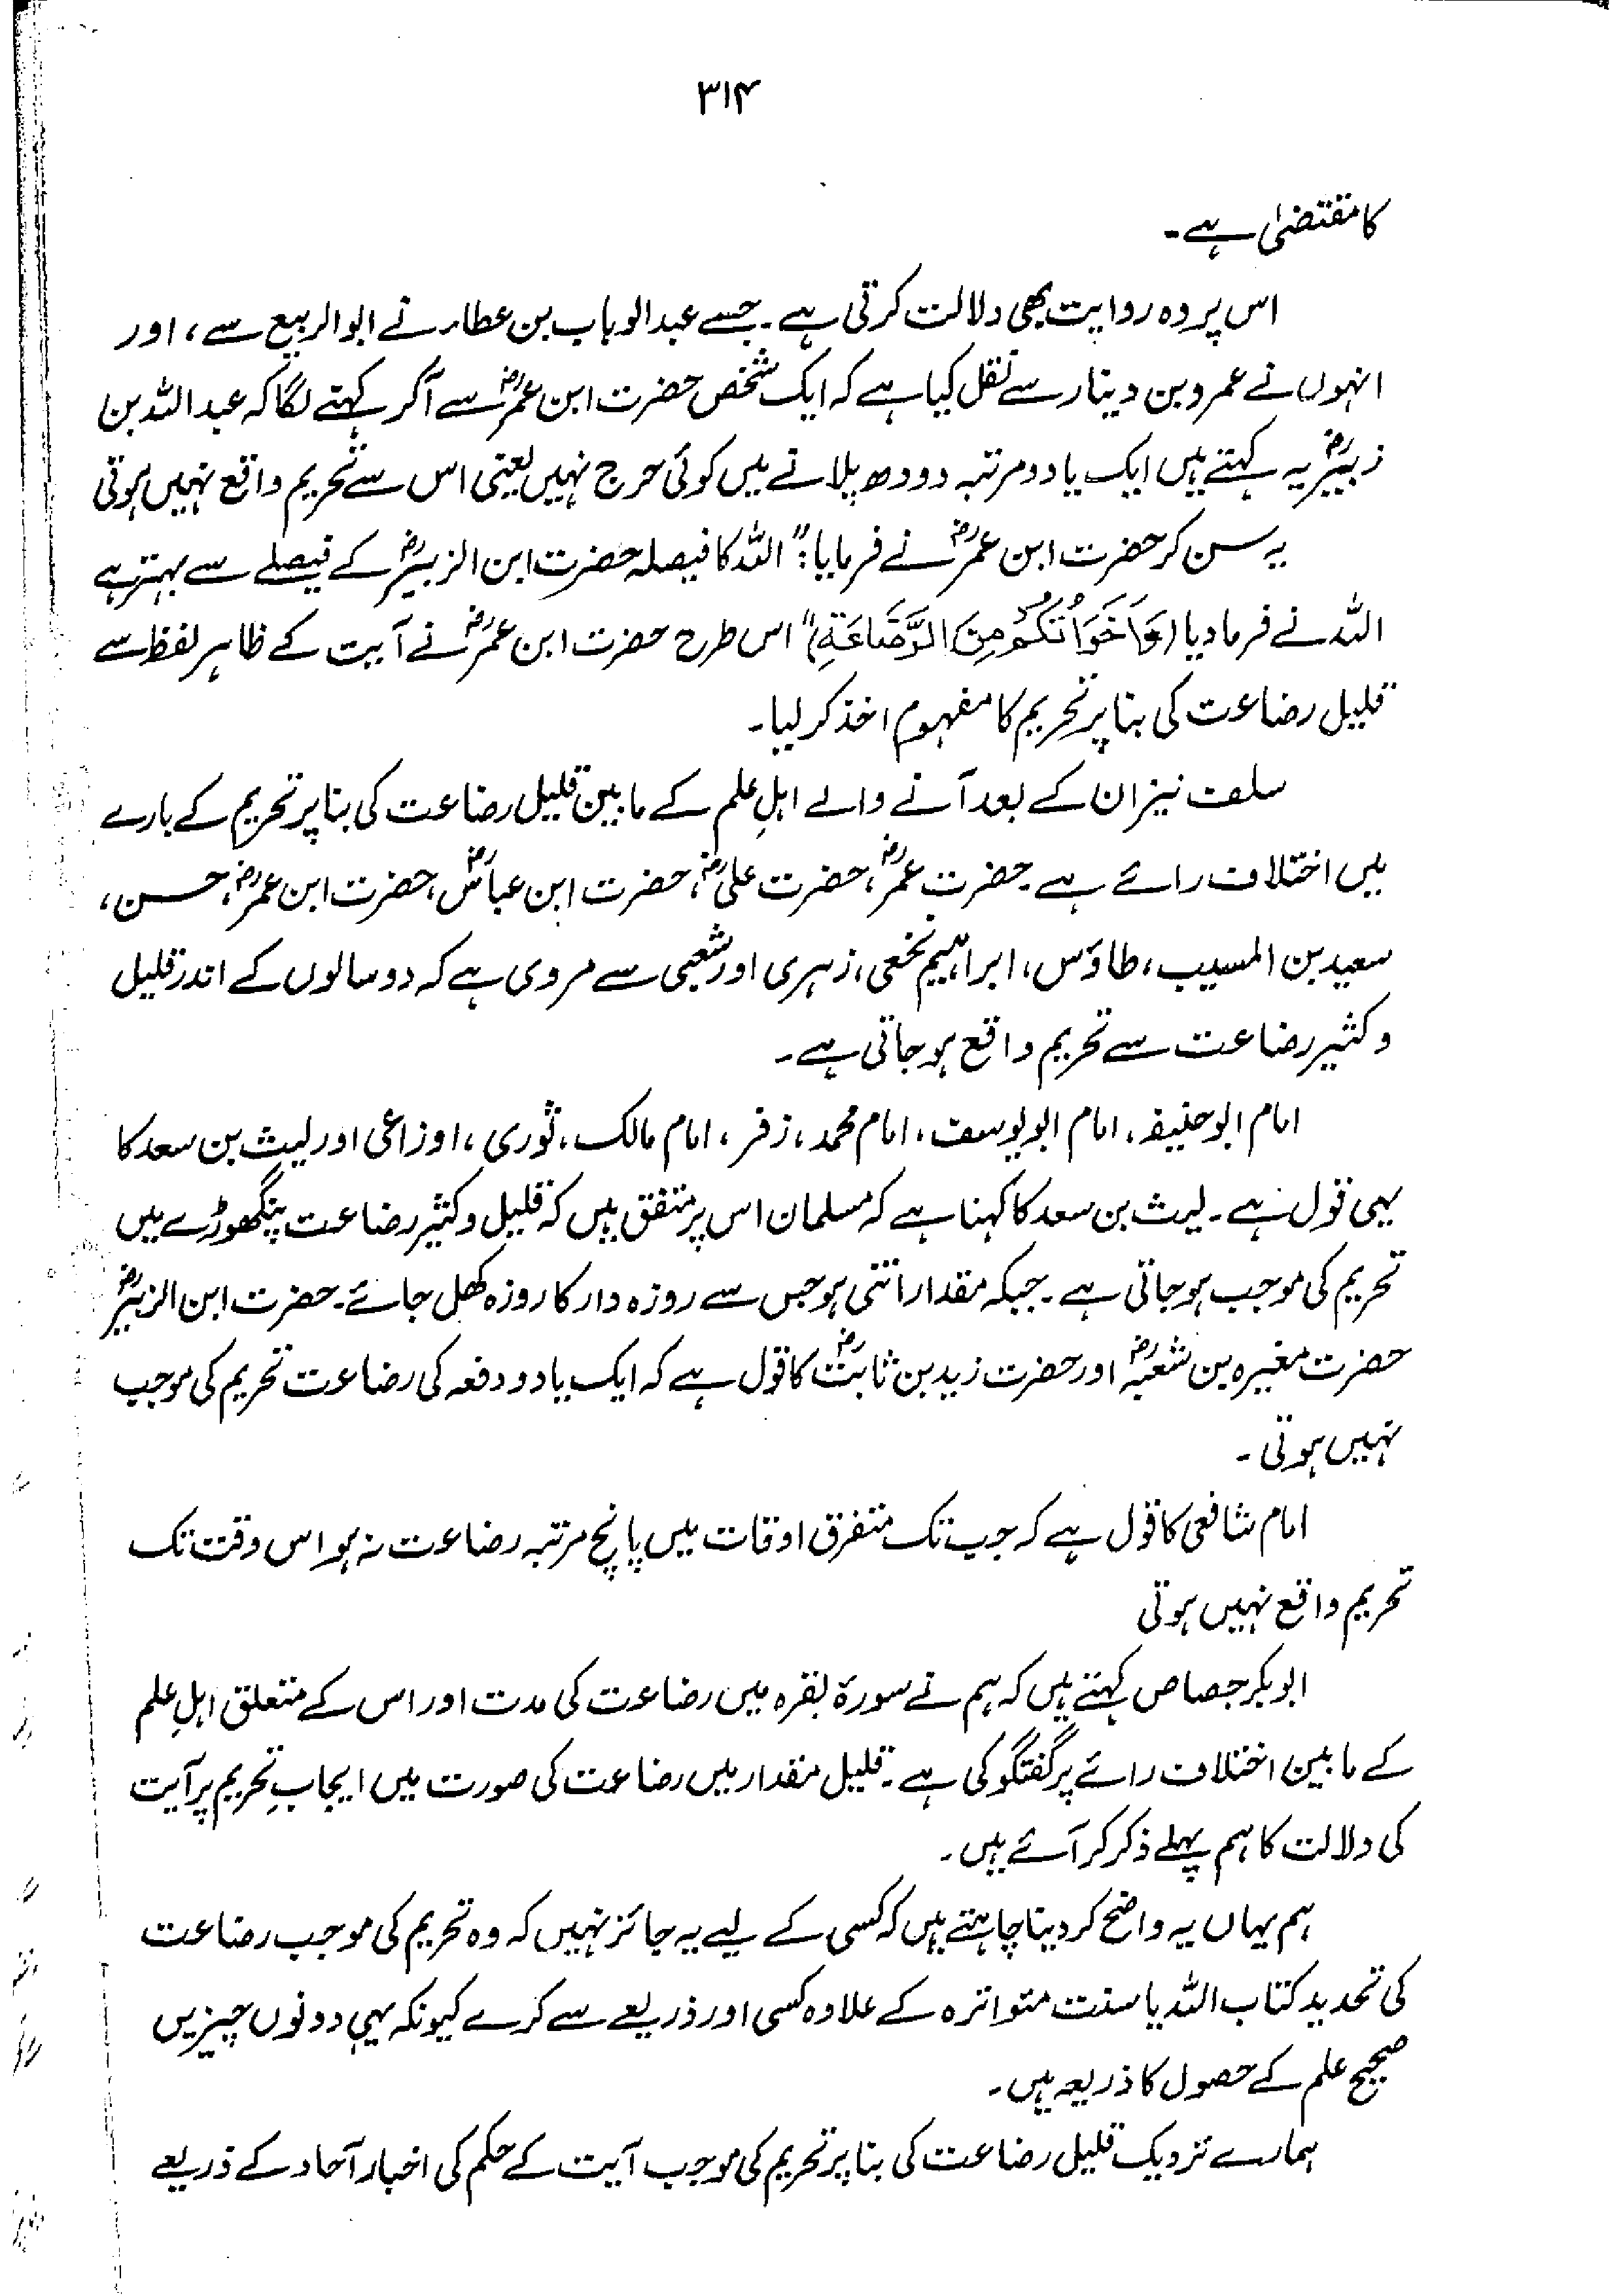 ۳۱۴
کا مقتضیٰ ہے۔
اس پر وہ روایت بھی دلالت کرتی ہے۔ جسے عبدالوہاب بن عطار نے ابوالربیع سے، اور
انہوں نے عمرو بن دینار سے نقل کیا ہے کہ ایک شخص حضرت ابن عمرؓ سے آکر کہنے لگا کہ عبداللہ بن
زبیرؓ یہ کہتے ہیں ایک یا دو مرتبہ دودھ پلانے میں کوئی حرج نہیں یعنی اس سے تحریم واقع نہیں ہوتی
یہ سن کر حضرت ابن عمرؓ نے فرمایا: "اللہ کا فیصلہ حضرت ابن الزبیرؓ کے فیصلے سے بہتر ہے
اللہ نے فرما دیا (وَاَخَوَاتُكُمْ مِنَ الرَّضَاعَةِ)" اس طرح حضرت ابن عمرؓ نے آیت کے ظاہر لفظ سے
قلیل رضاعت کی بنا پر تحریم کا مفہوم اخذ کر لیا۔
سلف نیز ان کے بعد آنے والے اہلِ علم کے مابین قلیل رضاعت کی بنا پر تحریم کے بارے
میں اختلاف رائے ہے۔ حضرت عمرؓ، حضرت علیؓ، حضرت ابن عباسؓ، حضرت ابن عمرؓ، حسن،
سعید بن المسیب، طاؤس، ابراہیم نخعی، زہری اور شعبی سے مروی ہے کہ دو سالوں کے اندر قلیل
و کثیر رضاعت سے تحریم واقع ہو جاتی ہے۔
امام ابوحنیفہ، امام ابویوسف، امام محمد، زفر، امام مالک، ثوری، اوزاعی اور لیث بن سعد کا
یہی قول ہے۔ لیث بن سعد کا کہنا ہے کہ مسلمان اس پر متفق ہیں کہ قلیل و کثیر رضاعت پنگھوڑے میں
تحریم کی موجب ہو جاتی ہے۔ جبکہ مقدار اتنی ہو جس سے روزہ دار کا روزہ کھل جائے۔ حضرت ابن الزبیرؓ
حضرت مغیرہ بن شعبہؓ اور حضرت زید بن ثابتؓ کا قول ہے کہ ایک یا دو دفعہ کی رضاعت تحریم کی موجب
نہیں ہوتی۔
امام شافعی کا قول ہے کہ جب تک متفرق اوقات میں پانچ مرتبہ رضاعت نہ ہو اس وقت تک
تحریم واقع نہیں ہوتی
ابوبکر جصاص کہتے ہیں کہ ہم نے سورۃ بقرہ میں رضاعت کی مدت اور اس کے متعلق اہلِ علم
کے مابین اختلاف رائے پر گفتگو کی ہے۔ قلیل مقدار میں رضاعت کی صورت میں ایجابِ تحریم پر آیت
کی دلالت کا ہم پہلے ذکر کر آئے ہیں۔
ہم یہاں یہ واضح کر دینا چاہتے ہیں کہ کسی کے لیے یہ جائز نہیں کہ وہ تحریم کی موجب رضاعت
کی تحدید کتاب اللہ یا سنت متواترہ کے علاوہ کسی اور ذریعے سے کرے کیونکہ یہی دونوں چیزیں
صحیح علم کے حصول کا ذریعہ ہیں۔
ہمارے نزدیک قلیل رضاعت کی بنا پر تحریم کی موجب آیت کے حکم کی اخبار آحاد کے ذریعے